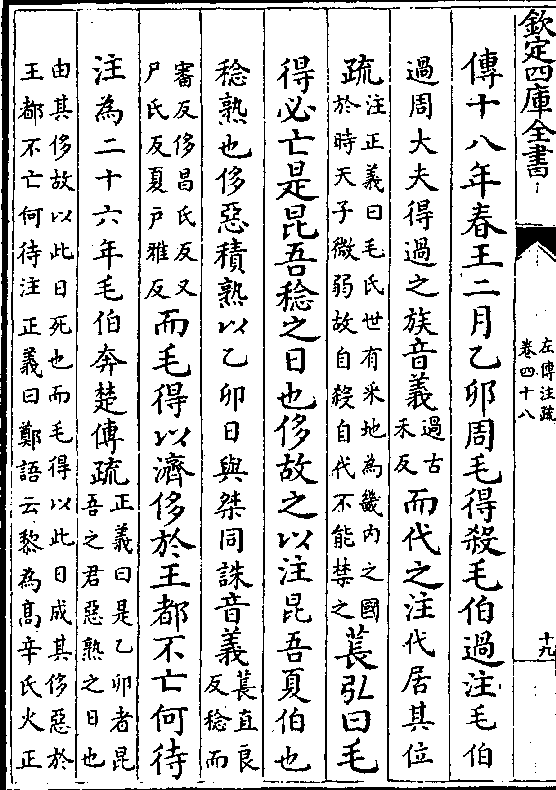 欽定四庫全書
左傳注疏
卷四十八
十九
傳十八年春王二月乙卯周毛得殺毛伯過注毛伯
過周大夫得過之族音義過古禾反而代之注代居其位
疏注正義曰毛氏世有采地為畿内之國於時天子微弱故自殺自代不能禁之萇弘曰毛
得必亡是昆吾稔之日也侈故之以注昆吾夏伯也
稔熟也侈惡積熟以乙卯日與桀同誅音義萇直良反稔而
審反侈昌氏反又尸氏反夏戸雅反而毛得以濟侈於王都不亡何待
注為二十六年毛伯奔楚傳疏正義曰是乙卯者昆吾之君惡熟之日也
由其侈故以此日死也而毛得以此日成其侈惡於王都不亡何待注正義曰鄭語云黎為髙辛氏火正